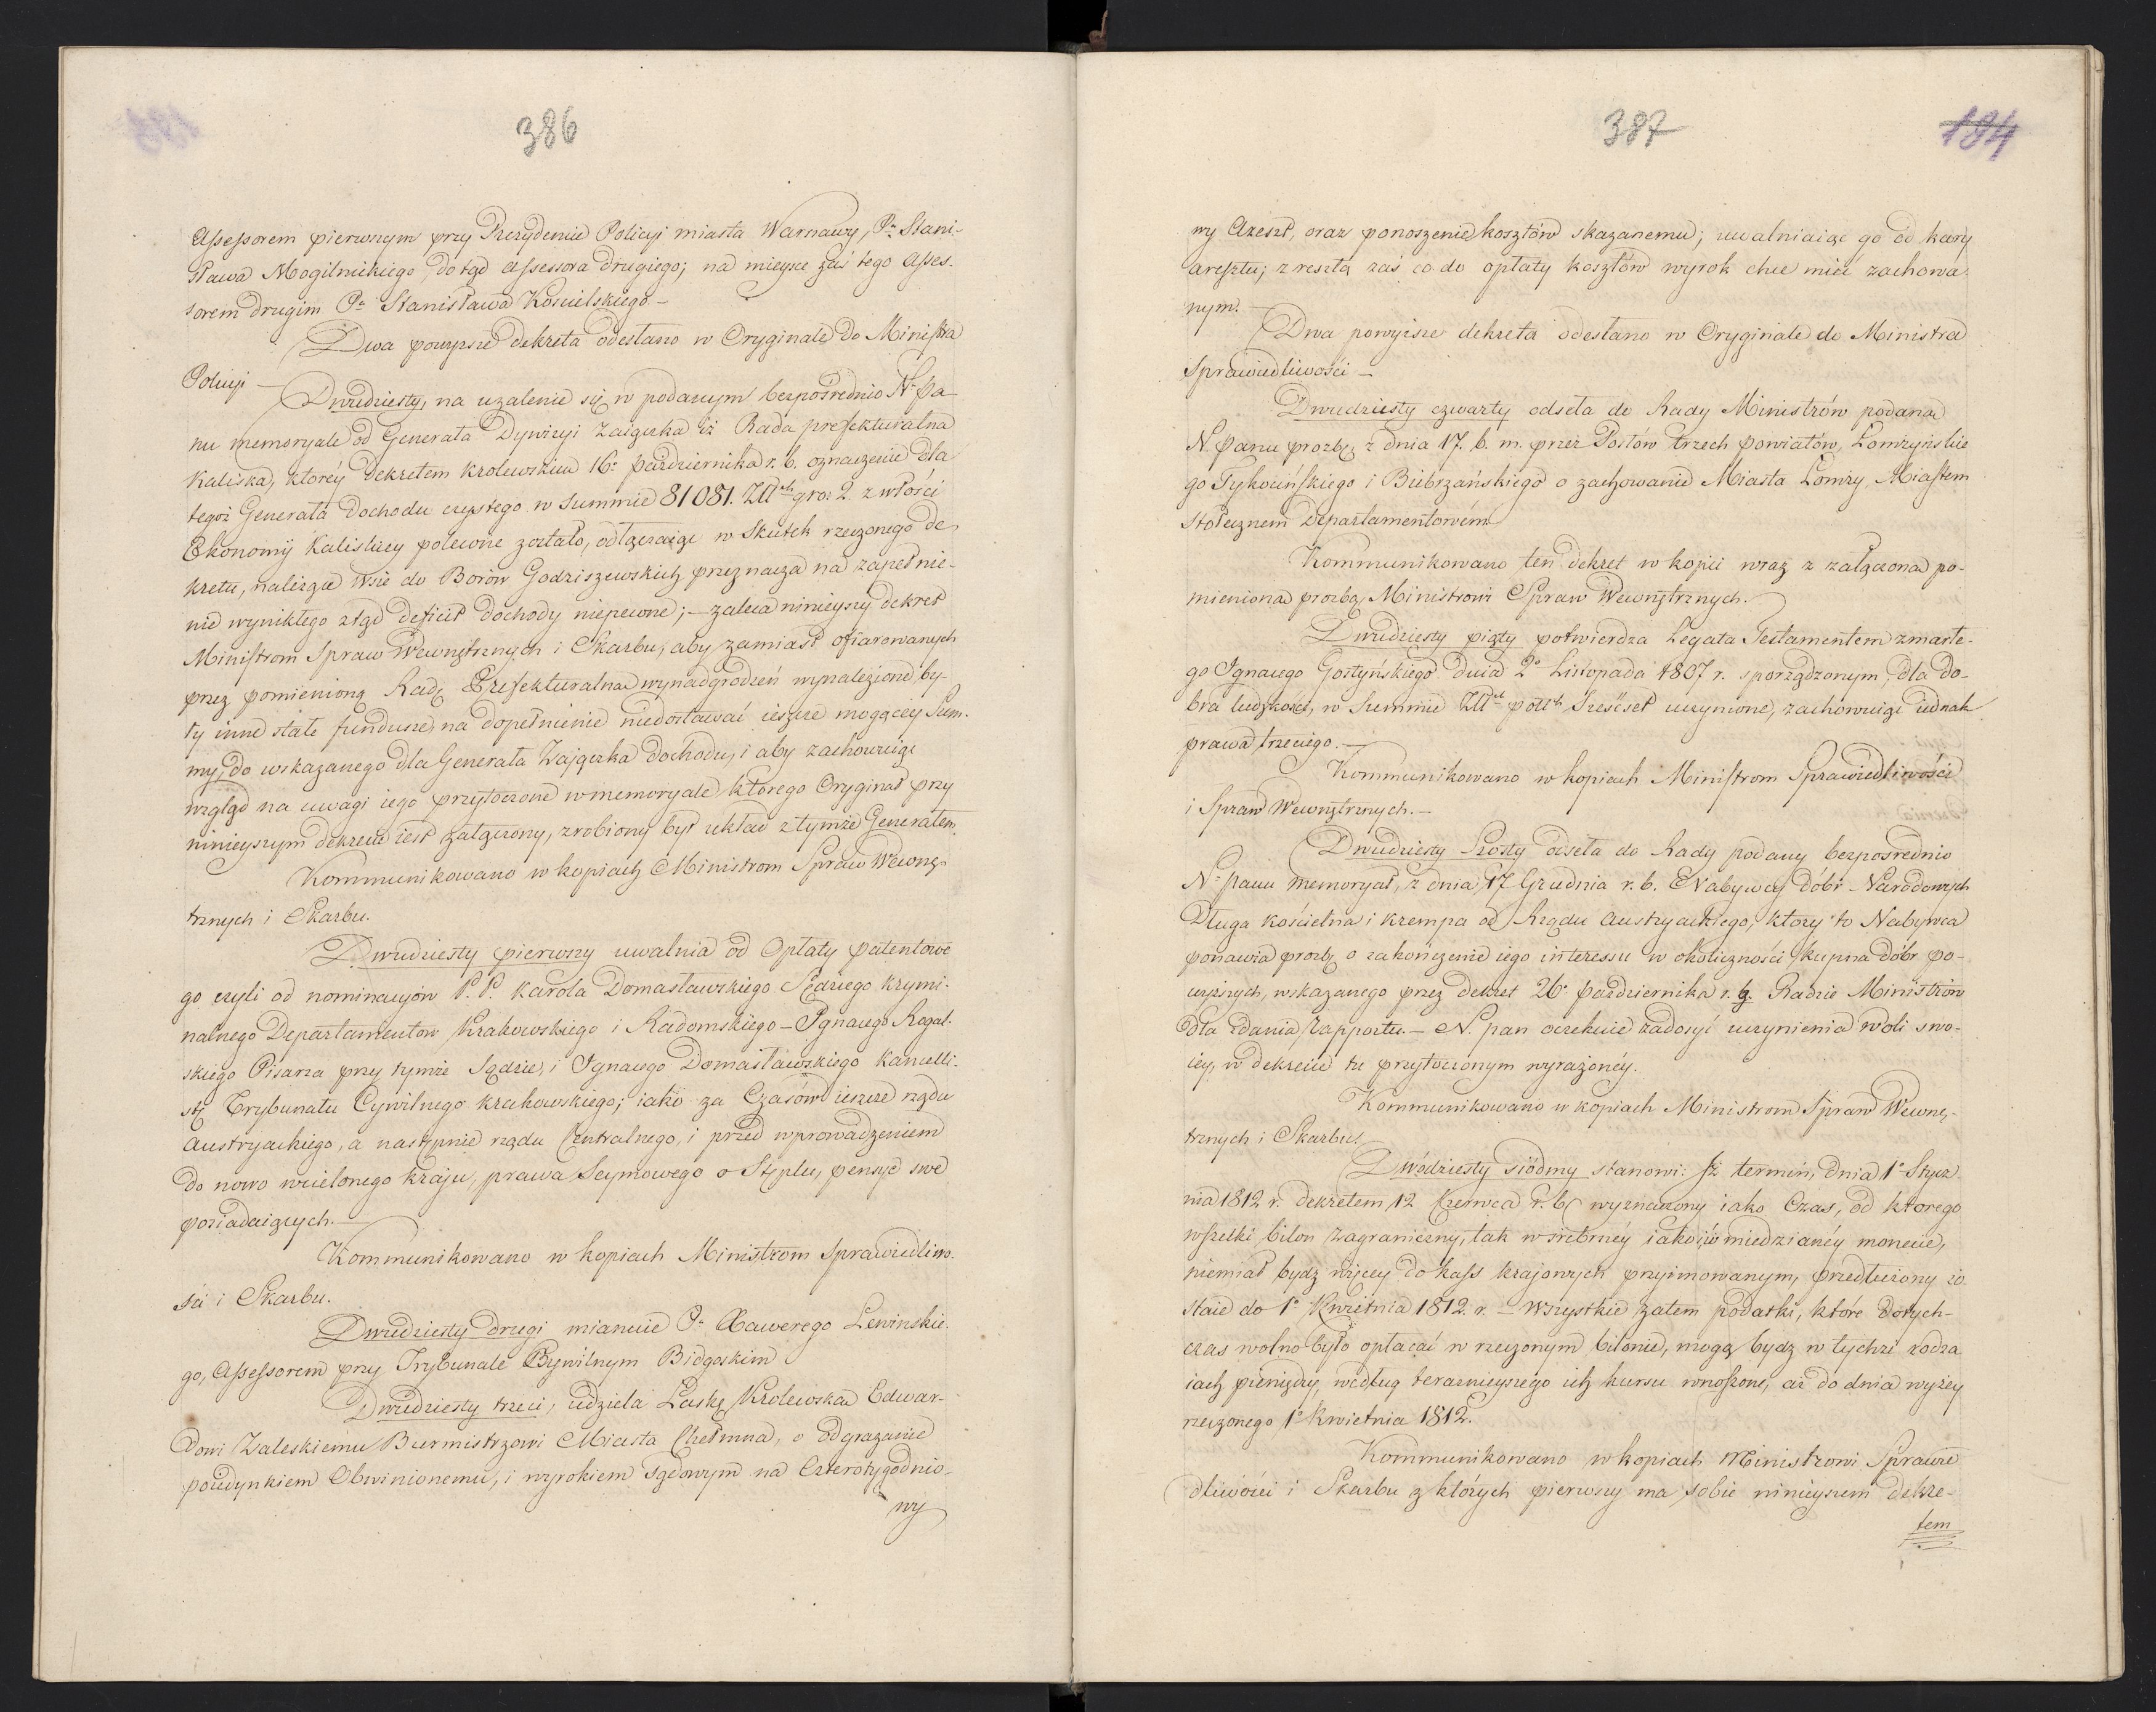 386
Assessorem pierwszym przy Prezydencie Policyi miasta Warszawy, Pa Stani-
sława Mogilnickiego, dotąd Assessora drugiego; na mieysce zaś tego Asses-
sorem drugim Pa Stanisława Kościelskiego. –
Dwa powyższe dekreta odesłano w Oryginale do Ministra
Policyi –
Dwudziesty, na użalenie się w podanym bezpośrednio N. Pa-
nu memoryale od Generała Dywizyi Zaiączka iż Rada prefekturalna
Kaliska, któréy dekretem królewskim 16o października r. b. oznaczenie dla
tegoż Generała dochodu czystego w Summie 81081. Złłch gro: 2. z włości
Ekonomij Kaliskiey polecone zostało, odłączaiąc w skutek rzeczonego de-
kretu, należące wsie do Borów Godziszewskich przeznacza na zapełnie-
nie wynikłego ztąd deficit dochody niepewne; – zaleca ninieyszy dekret
Ministrom Spraw Wewnętrznych i Skarbu, aby zamiast ofiarowanych
przez pomienioną Radę Prefekturalną wynadgrodzeń wynalezione by-
ły inne stałe fundusze, na dopełnienie niedostawać ieszcze mogącéy Sum-
my, do wskazanego dla Generała Zajączka dochodu, i aby zachowuiąc
wzgląd na uwagi iego przytoczone w memoryale, którego Oryginał przy
ninieyszym dekrecie iest załączony, zrobiony był układ z tymże Generałem.
Kommunikowano w kopiach Ministrom Spraw Wewnę-
trznych i Skarbu.
Dwudziesty pierwszy uwalnia od Opłaty patentowe
go czyli od nominacyjow P. P. Karola Domasławskiego Sędziego krymi-
nalnego Departamentow Krakowskiego i Radomskiego – Ignacego Rogal-
skiego Pisarza przy tymże Sądzie, i Ignacego Domasławskiego Kancelli-
stę Trybunału Cywilnego krakowskiego; iako za Czasów ieszcze rządu
Austryackiego, a następnie rządu Centralnego, i przed wprowadzeniem
do nowo wcielonego kraju, prawa Seymowego o Stęplu, pensye swe
posiadaiących. –
Kommunikowano w kopiach Ministrom Sprawiedliwo-
ści i Skarbu.
Dwudziesty drugi mianuie Pa Xawerego Lewinskie-
go, Assessorem przy Trybunale Cywilnym Bidgoskim
Dwudziesty trzeci, udziela Łaskę Królewską Edwar-
dowi Zaleskiemu Burmistrzowi Miasta Chełmna, o odgrazanie
poiedynkiem Obwinionemu, i wyrokiem sądowym na Czterotygodnio-
wy
387
184
wy Areszt, oraz ponoszenie kosztów skazanemu; uwalniaiąc go od kary
aresztu; z resztą zaś co do opłaty kosztów wyrok chce mieć zachowa-
nym. –
Dwa powyższe dekreta odesłano w Oryginale do Ministra
Sprawiedliwości –
Dwudziesty czwarty odseła do Rady Ministrów podaną
N. Panu prozbę z dnia 17. b. m. przez Posłów trzech powiatów, Łomzyńskie
go Tykocińskiego i Biebrzańskiego o zachowanie Miasta Łomży, Miastem
stołecznem Departamentowém
Kommunikowano ten dekret w kopii wraz z załączoną po-
mienioną prozbą, Ministrowi Spraw Wewnętrznych.
Dwudziesty piąty potwierdza Legata Testamentem zmarłe-
go Ignacego Gostyńskiego dnia 2o Listopada 1807 r. sporządzonym, dla do-
bra ludzkości, w Summie Złłch polsch Sześćset uczynione, zachowuiąc iednak
prawa trzeciego. –
Kommunikowano w kopiach Ministrom Sprawiedliwości
i Spraw Wewnętrznych. –
Dwudziesty Szósty odseła do Rady podany bezpośrednio
N. Panu memoryał, z dnia 17 Grudnia r. b. Nabywcy dóbr Narodowych
Długa kościelna i Krempa od Rządu Austryackiego, który to Nabywca
ponawia prozbę o zakończenie iego interessu w okoliczności kupna dóbr po-
wyższych, wskazanego przez dekret 26o października r. b. Radzie Ministrów
dla zdania Rapportu. – N. pan oczekuie zadosyć uczynienia woli swo-
iey, w dekrecie tu przytoczonym wyrażonéy.
Kommunikowano w kopiach Ministrom Spraw Wewnę-
trznych i Skarbu.
Dwódziesty siódmy stanowi: Iż termin, dnia 1o Stycz-
nia 1812 r. dekretem 12 Czerwca r. b. wyznaczony iako Czas, od którego
wszelki bilon zagraniczny, tak w srebrnéy iako i w miedzianéy monecie,
niemiał bydz więcey do kass krajowych przyimowanym, przedłużony zo-
staie do 1o Kwietnia 1812. r. – Wszystkie zatem podatki, które dotych-
czas wolno było opłacać w rzeczonym bilonie, mogą bydz w tychże rodza
iach pieniędzy, według teraznieyszego ich kursu wnoszone, aż do dnia wyżey
rzeczonego 1o Kwietnia 1812.
Kommunikowano w kopiach Ministrowi Sprawie
dliwości i Skarbu z których pierwszy ma sobie ninieyszem dekre-
tem